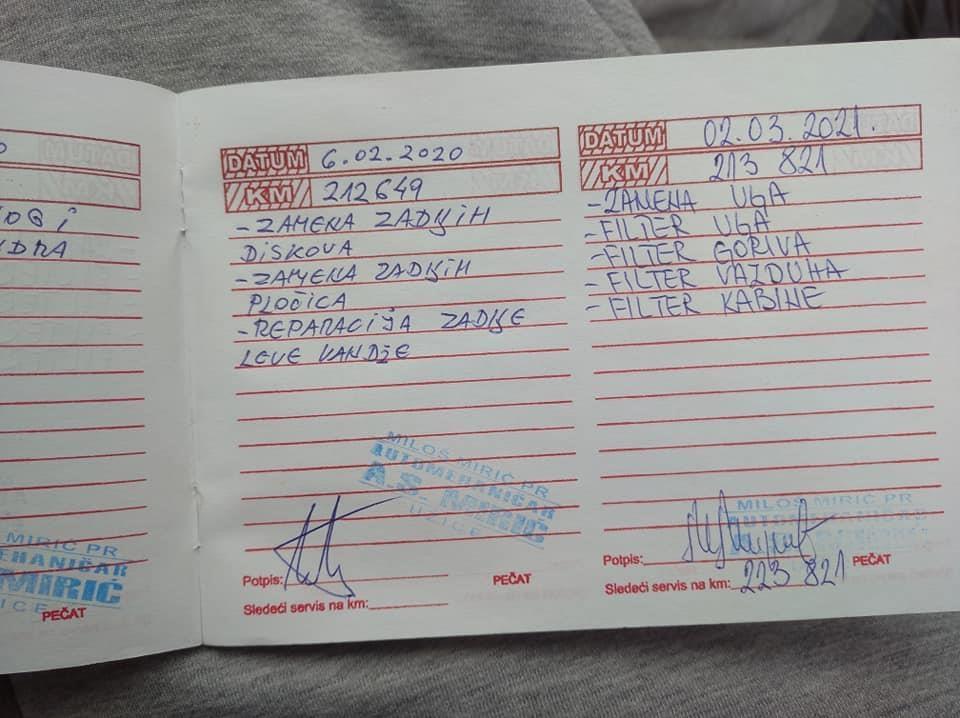 DATUM 6.02.2020
KM 212649
- ZAMENA ZADNJIH
DISKOVA
- ZAMENA ZADNJIH
PLOČICA
- REPARACIJA ZADNJE
LEVE KANDŽE
MILOŠ MIRIĆ PR
AUTOMEHANIČAR
A.S. MIRIĆ
UŽICE
Potpis:
PEČAT
Sledeći servis na km:
DATUM 02.03.2021.
KM 213 821
- ZAMENA UGA
- FILTER UGA
- FILTER GORIVA
- FILTER VAZDUHA
- FILTER KABINE
MILOŠ MIRIĆ PR
AUTOMEHANIČAR
Potpis:
PEČAT
Sledeći servis na km: 223 821
MIRIĆ PR
EHANIČAR
MIRIĆ
ICE
PEČAT